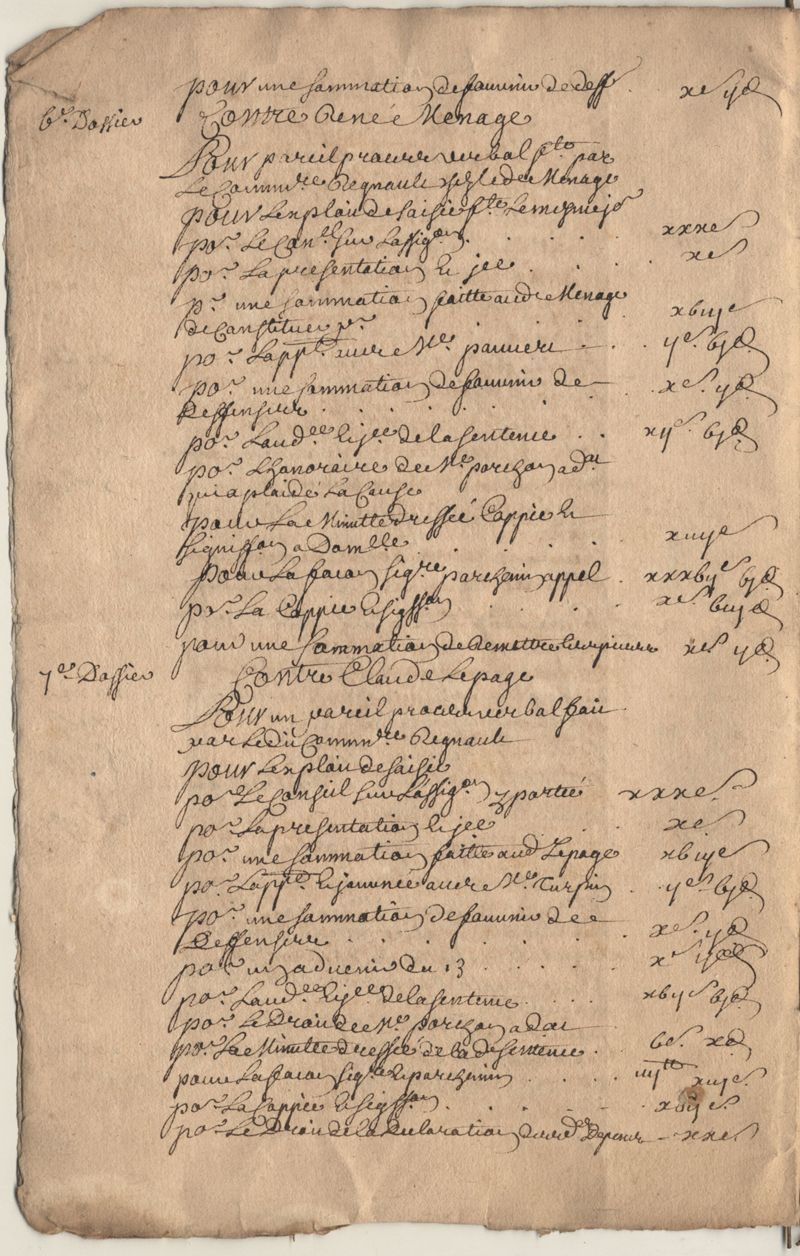 pour une sommation de fournir de deff. xs ijd
6e Dossier Contre René Menage
Pour pareil procez verbal fte par
Le Commre Regnault chez ledt Menage
pour Lexploit de saisie fte Le mesme jor
por Le Conel sur Lassigon xxxs
por La presentation Et jee xs
pr une sommation faitte audt Menage
de Constituer pr xviijs
por Lapptt avec Me pannier ijs vjd
por une sommation de fournir de
deffenses xs ijd
por Laudee Et jee de la sentence xijs vjd
por Lhonoraire de Me porchon adat
qui a plaidé La Cause
pour La Minutte dressée Coppie Et
signiffon a Domlle xiiijs
pour La facon sigre parchemin appel xxxvijs vjd
por La Coppie Et sigffon xs viijd
pour une sommation de Remettre les pieces xs ijd
7e Dossier Contre Claude Lepage
Pour un pareil procez verbal fait
par Ledit Commre Regnault
pour Lexploit de saisie
por Le Conseil sur Lassigon partie xxxs
por La presentation Et jee xs
por une sommation faitte audt Lepage xviijs
por Lapptt Et journée avec Me Turpin ijs vjd
por une sommation de fournir de
deffenses xs ijd
por un advenir du 13 xs ijd
por Laudee Et jee de la sentence xvijs vjd
por Le Droit de Me porchon adat
por La Minutte dressée de lade sentence vs xd
pour La facon sigre Et parchemin iiijtt xiijs
por La Coppie Et sigffon xviijs
por Le Droit de la Declaration des depens xxs